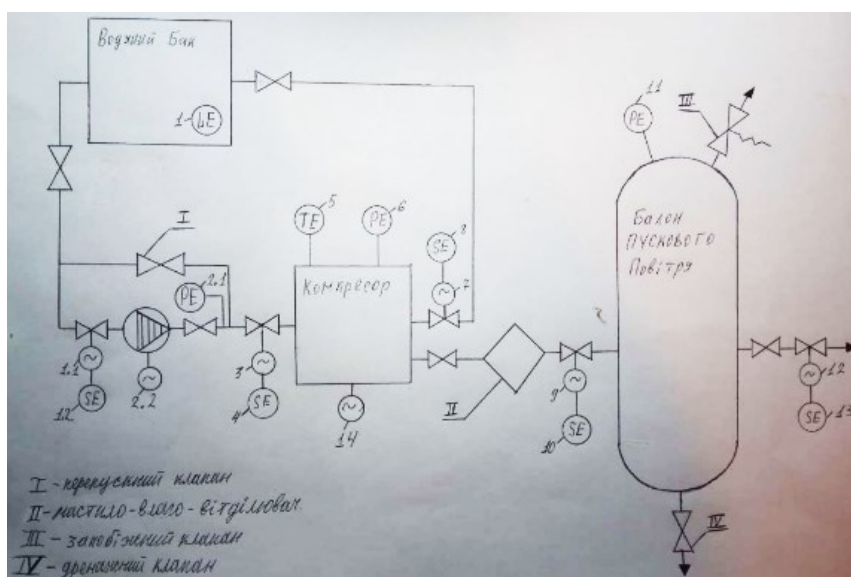 Водяний Бак
1 LE
I
5 TE
6 PE
8 SE
7
2.1 PE
Компресор
1.1
1.2 SE
2.2
3
4 SE
14
II
9
10 SE
11 PE
III
Балон
пускового
Повітря
12
SE 13
IV
I - перепускний клапан
II - мастило-влаго-вітділювач.
III - запобіжний клапан
IV - дренажний клапан